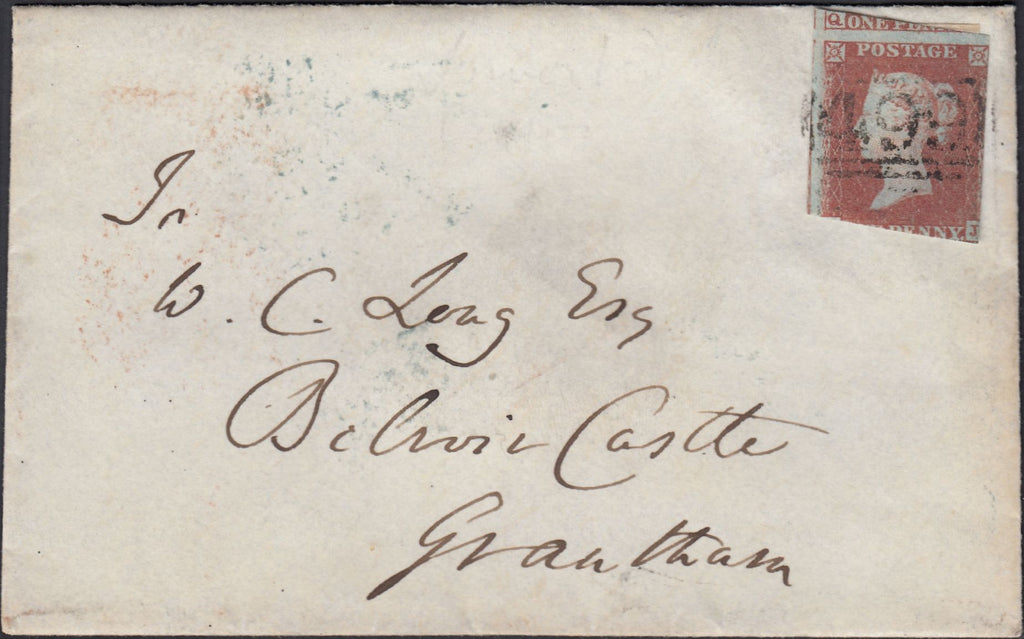 Q ONE PEN
POSTAGE
498
PENNY J
Jn
W. C. Long Esq
Belvoir Castle
Grantham